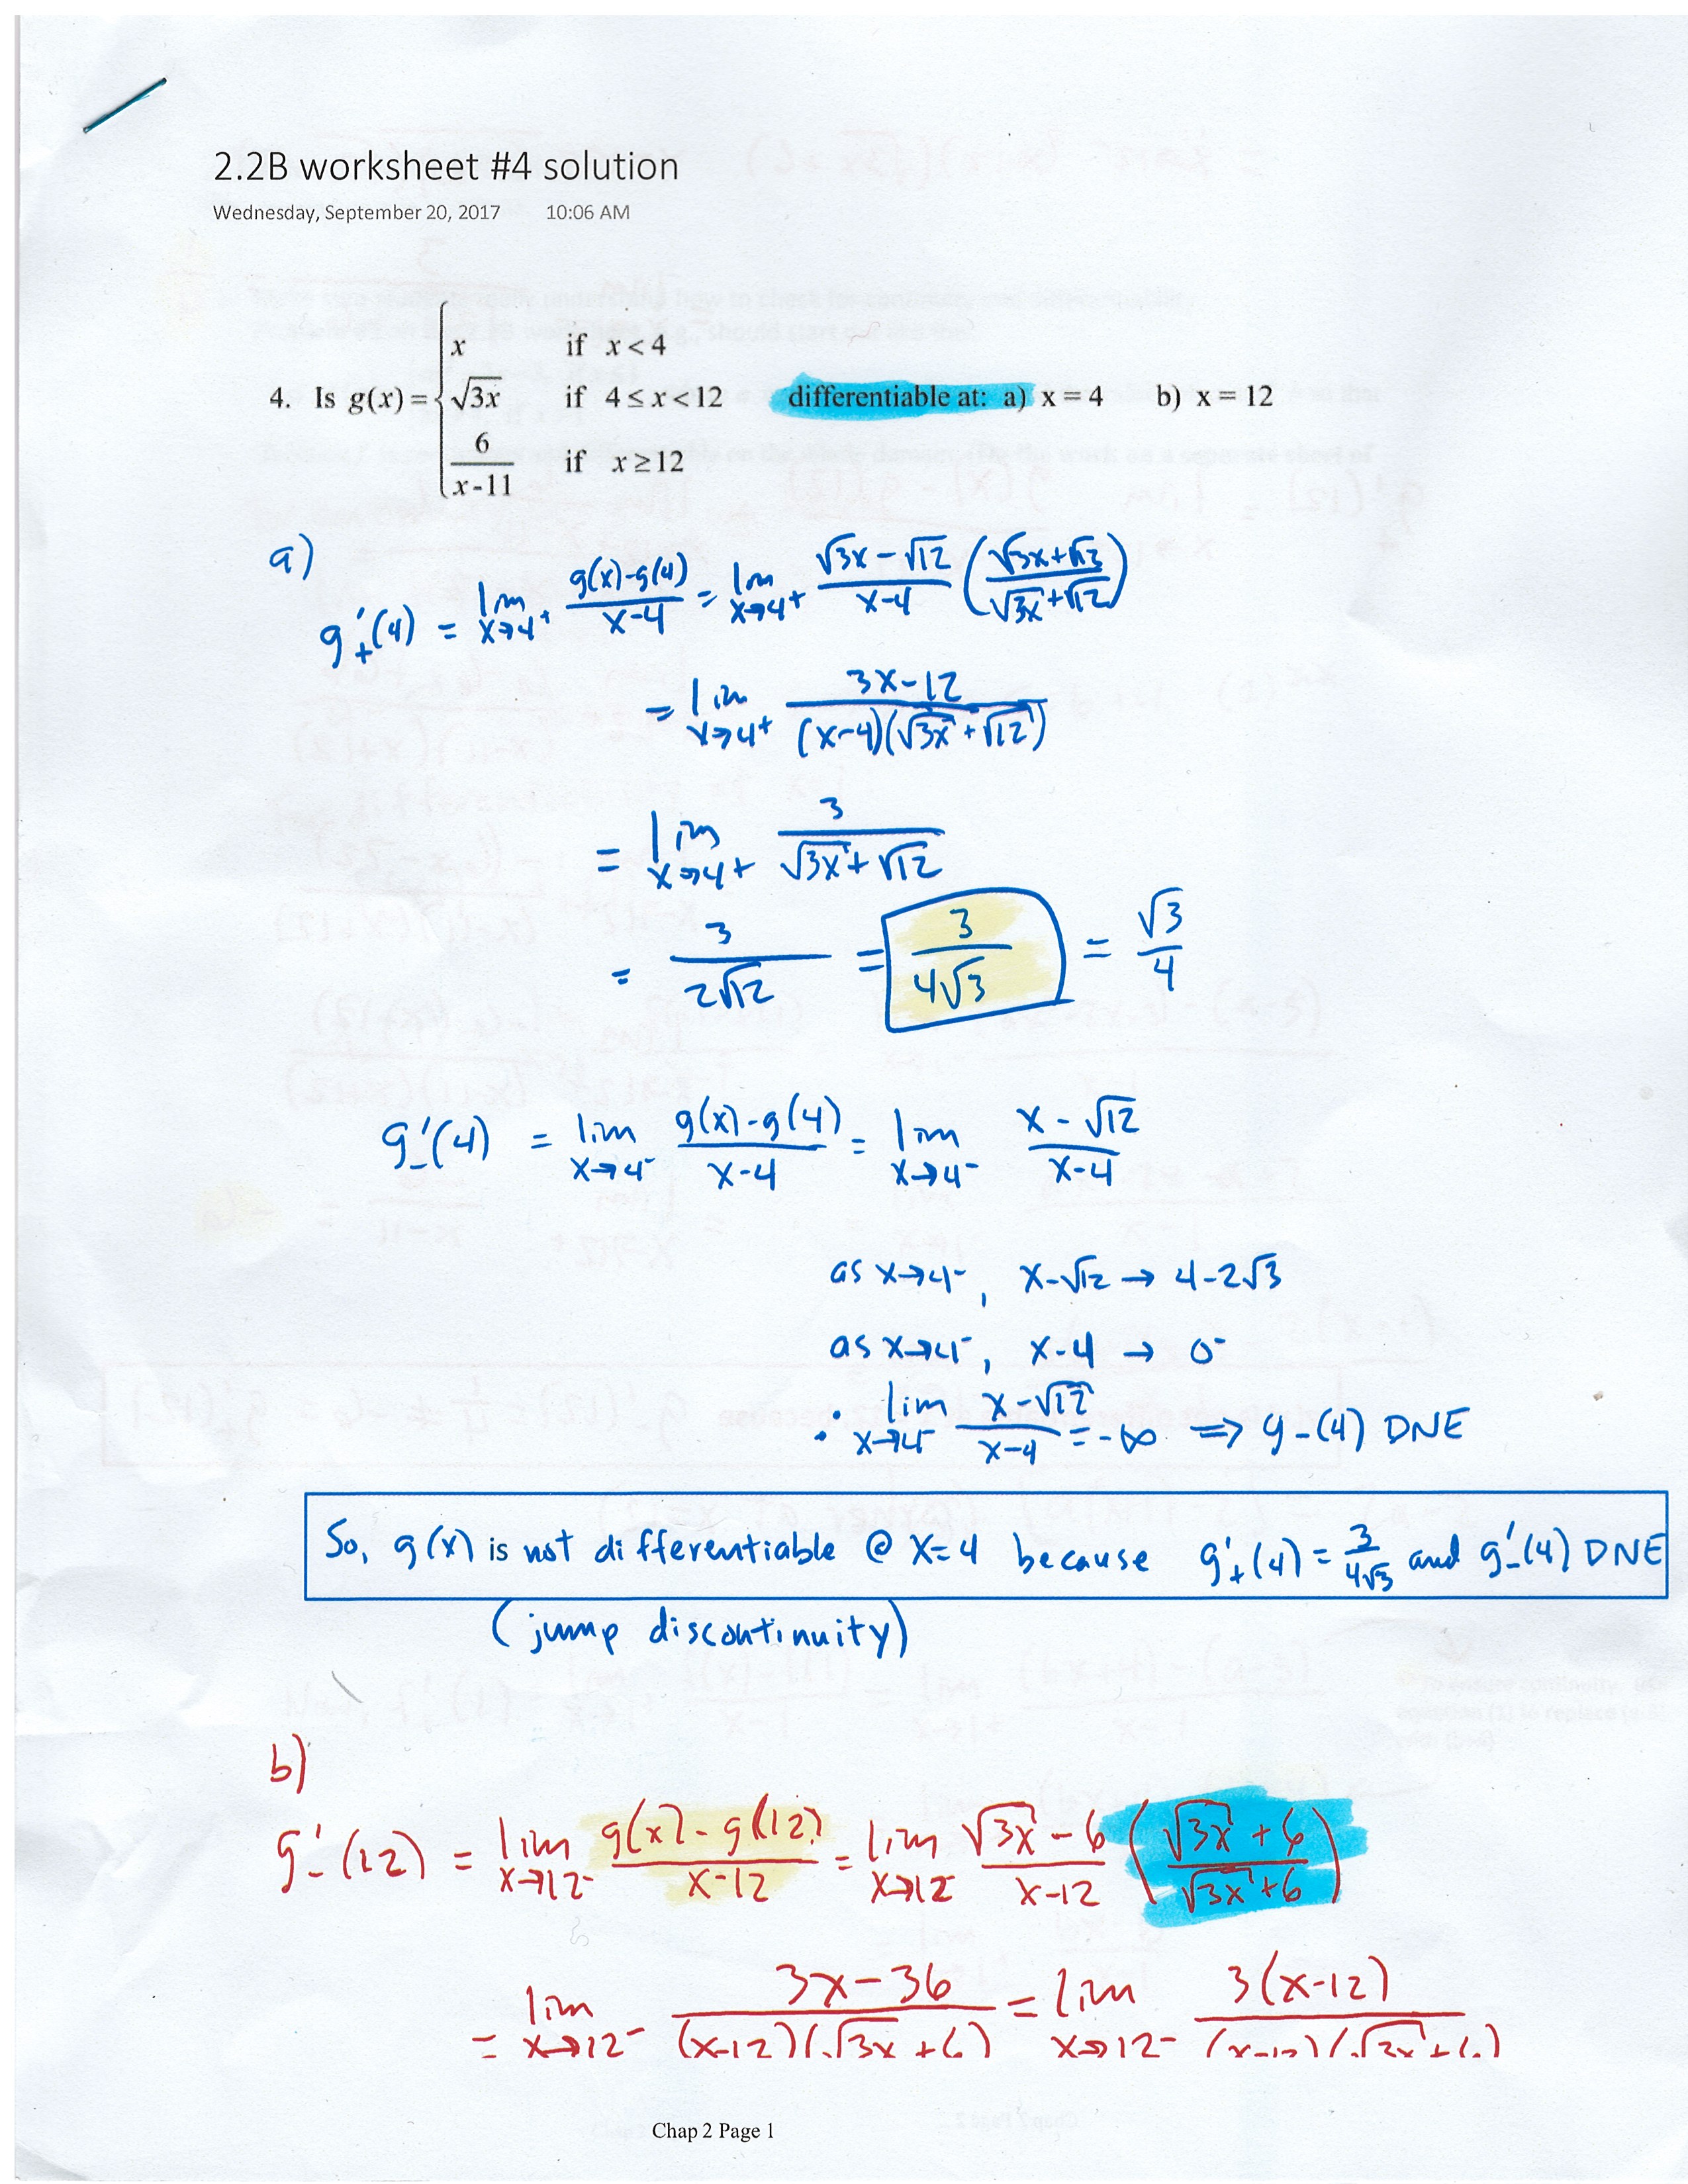 2.2B worksheet #4 solution
Wednesday, September 20, 2017 10:06 AM
4. Is g(x) = { x if x < 4
√3x if 4 ≤ x < 12 differentiable at: a) x = 4 b) x = 12
6/(x-11) if x ≥ 12
a)
g'₊(4) = lim x→4⁺ (g(x)-g(4))/(x-4) = lim x→4⁺ (√3x - √12)/(x-4) ((√3x+√13)/(√3x+√12))
= lim x→4⁺ (3x-12)/((x-4)(√3x+√12))
= lim x→4⁺ 3/(√3x+√12)
= 3/(2√12) = 3/(4√3) = √3/4
g'₋(4) = lim x→4⁻ (g(x)-g(4))/(x-4) = lim x→4⁻ (x-√12)/(x-4)
as x→4⁻, x-√12 → 4-2√3
as x→4⁻, x-4 → 0⁻
: lim x→4⁻ (x-√12)/(x-4) = -∞ ⇒ g₋(4) DNE
So, g(x) is not differentiable @ x=4 because g'₊(4) = 3/(4√3) and g'₋(4) DNE
(jump discontinuity)
b)
g'₋(12) = lim x→12⁻ (g(x)-g(12))/(x-12) = lim x→12⁻ (√3x - 6)/(x-12) ((√3x+6)/(√3x+6))
= lim x→12⁻ (3x-36)/((x-12)(√3x+6)) = lim x→12⁻ 3(x-12)/((x-12)(√3x+6))
Chap 2 Page 1